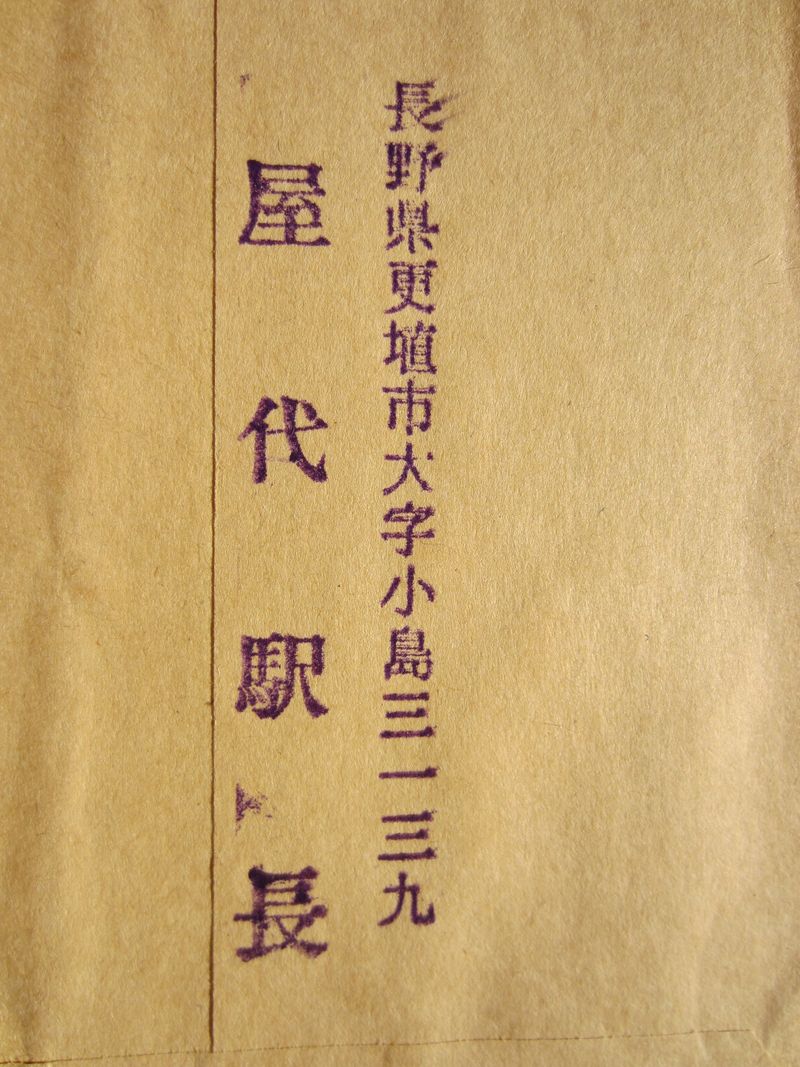 長野県更埴市大字小島三一三九
屋代駅長